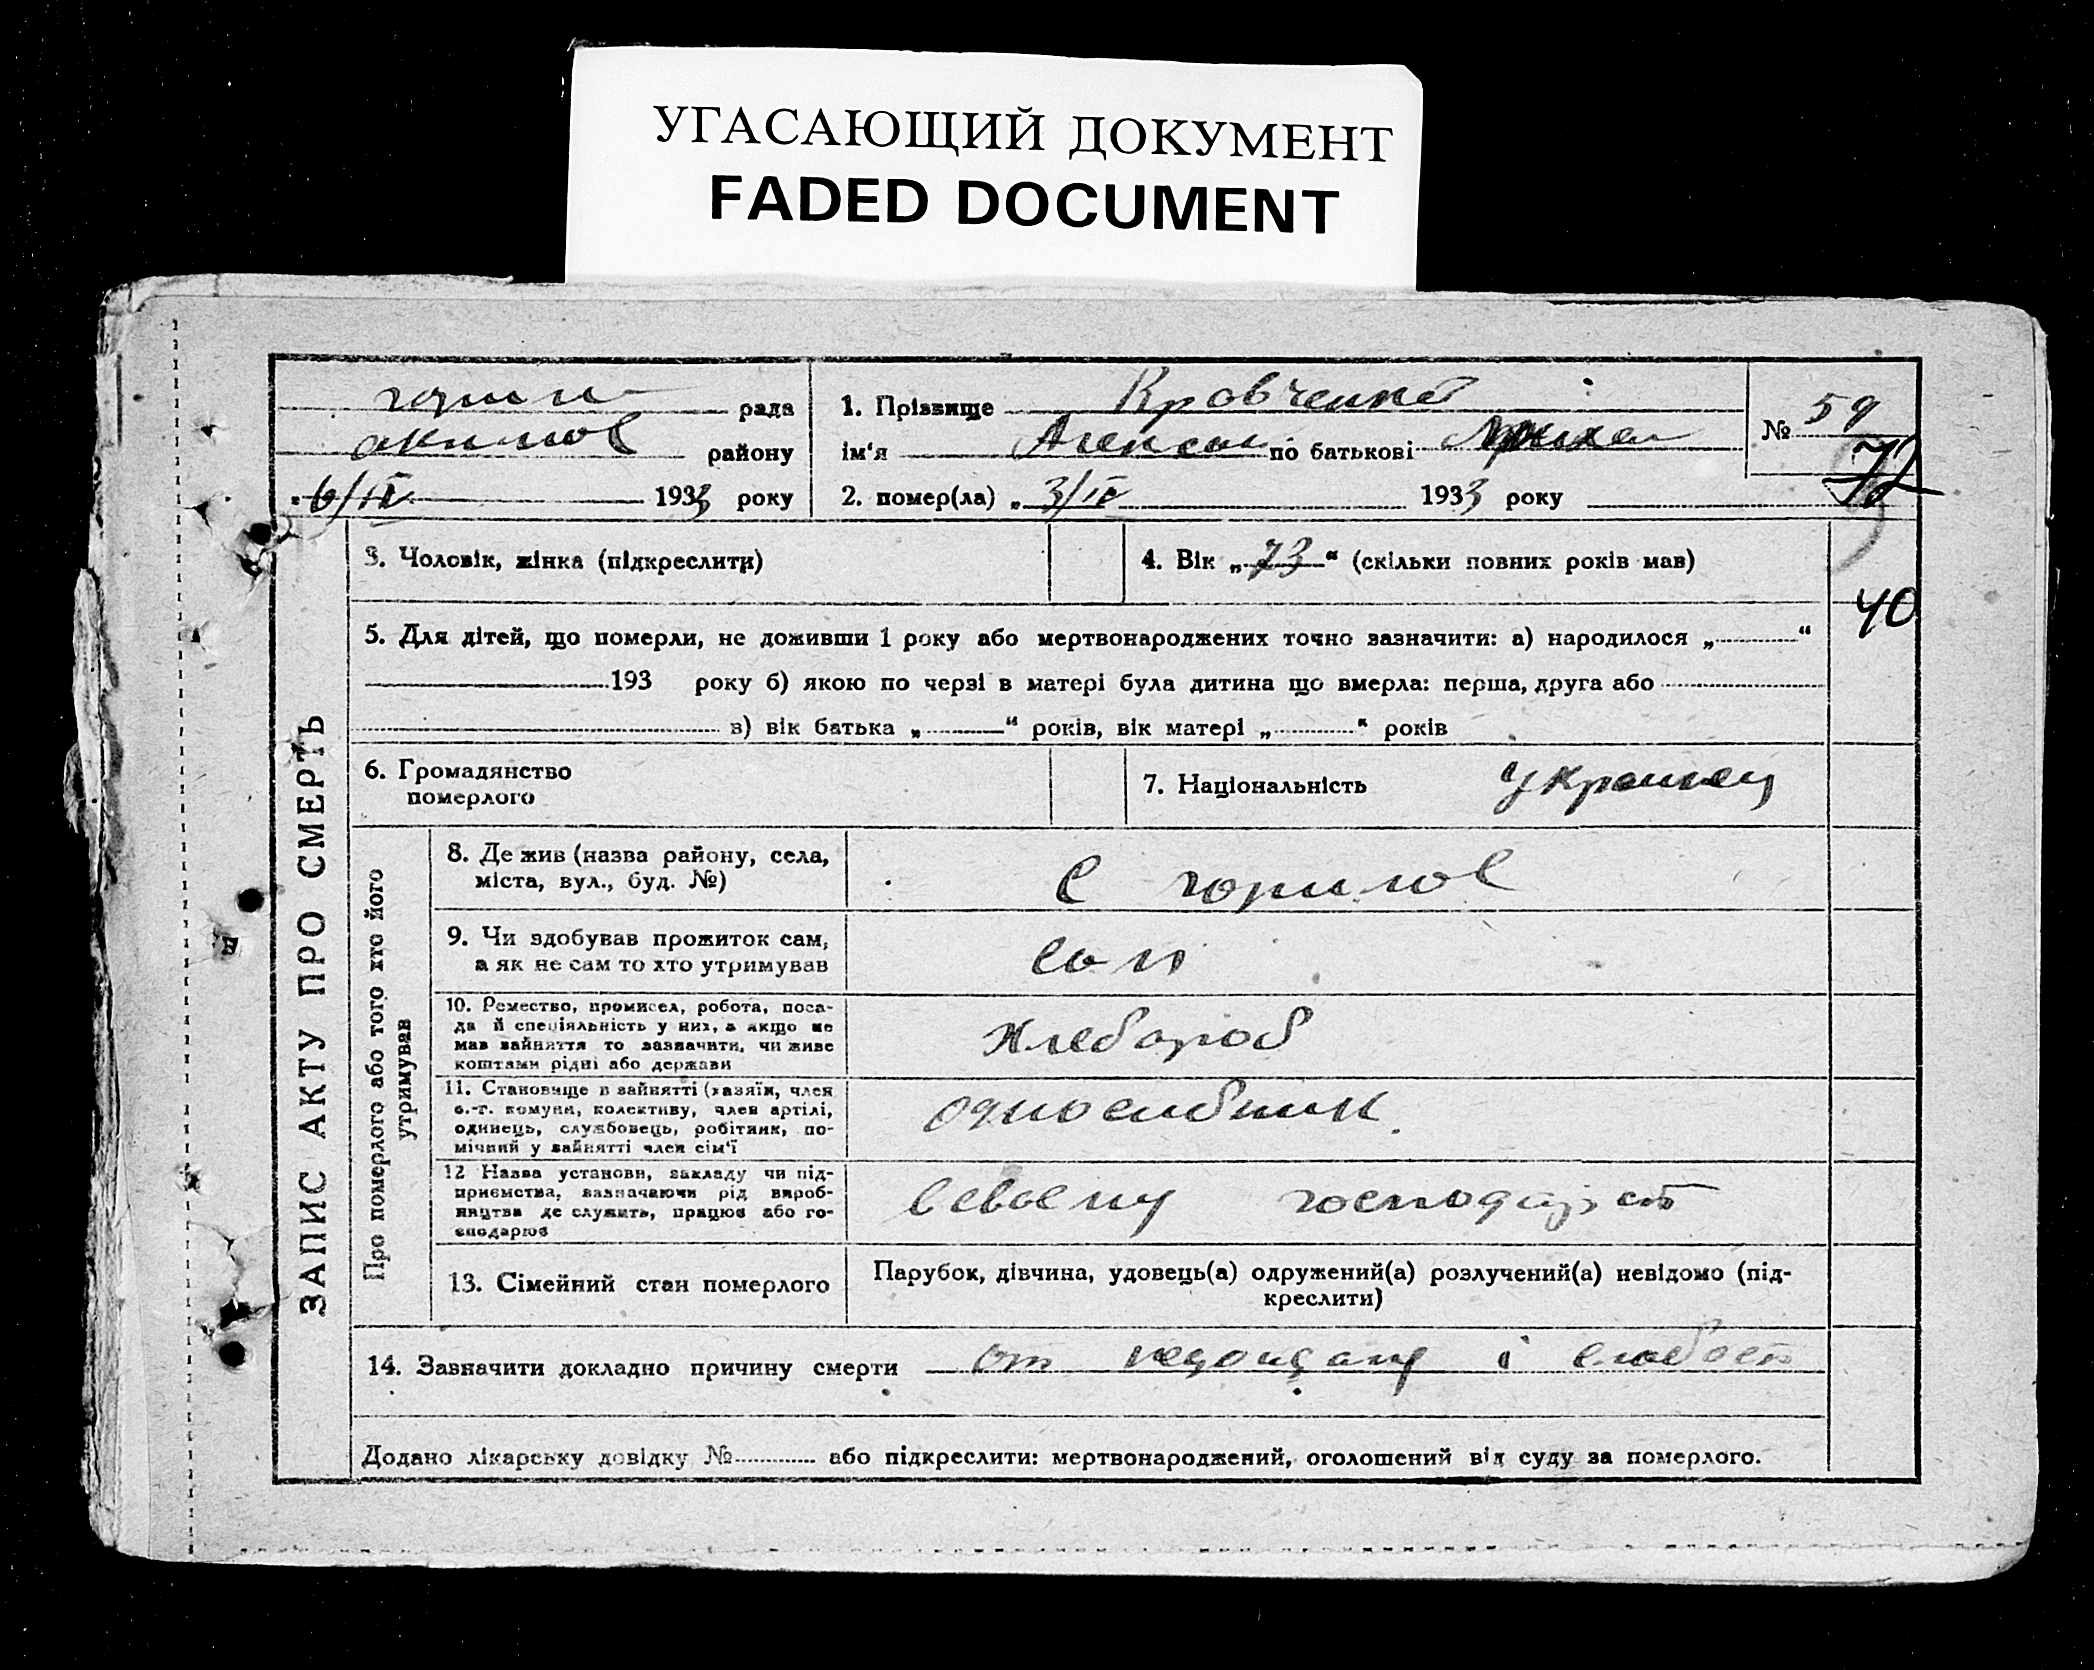 УГАСАЮЩИЙ ДОКУМЕНТ
FADED DOCUMENT
рада
району
6/IV 1933 року
1. Прізвище Кровченко
ім'я по батькові
2. помер(ла) „3/IV 1933 року
№ 59
72
40
ЗАПИС АКТУ ПРО СМЕРТЬ
3. Чоловік, жінка (підкреслити)
4. Вік „73“ (скільки повних років мав)
5. Для дітей, що померли, не доживши 1 року або мертвонароджених точно зазначити: а) народилося „ “
193 року б) якою по черзі в матері була дитина що вмерла: перша, друга або
в) вік батька „ “ років, вік матері „ “ років
6. Громадянство
померлого
7. Національність Украинец
Про померлого або того хто його
утримував
8. Де жив (назва району, села,
міста, вул., буд. №)
с
9. Чи здобував прожиток сам,
а як не сам то хто утримував
сам
10. Ремество, промисел, робота, поса-
да й спеціяльність у них, а якщо не
мав зайняття то зазначити, чи живе
коштами рідні або держави
хлебороб
11. Становище в зайнятті (хазяїн, член
с.-г. комуни, колективу, член артілі,
одинець, службовець, робітник, по-
мічний у зайнятті член сім'ї
односибник
12 Назва установи, закладу чи під-
приємства, зазначаючи рід вироб-
ництва де служить, працює або го-
сподарює
всвоему господарст
13. Сімейний стан померлого
Парубок, дівчина, удовець(а) одружений(а) розлучений(а) невідомо (під-
креслити)
14. Зазначити докладно причину смерти от і слабост
Додано лікарську довідку № або підкреслити: мертвонароджений, оголошений від суду за померлого.